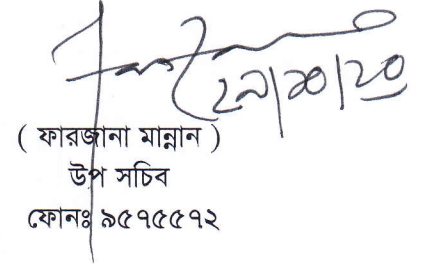 ২৯|১০|২০
( ফারজানা মান্নান )
উপ সচিব
ফোনঃ ৯৫৭৫৫৭২